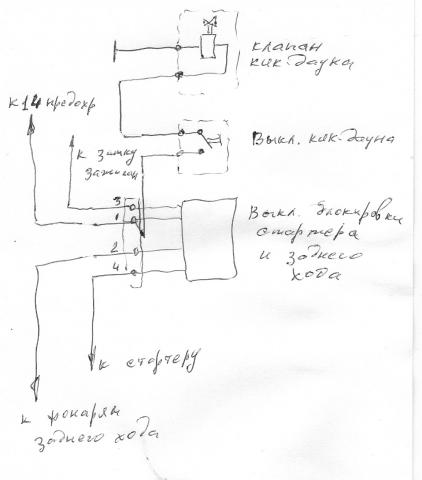 клапан
кик-дауна
к 14 предохр
Выкл. кик-дауна
к замку
зажиган
3
1
2
4
Выкл. блокировки
стартера
и заднего
хода
к стартеру
к фонарям
заднего хода